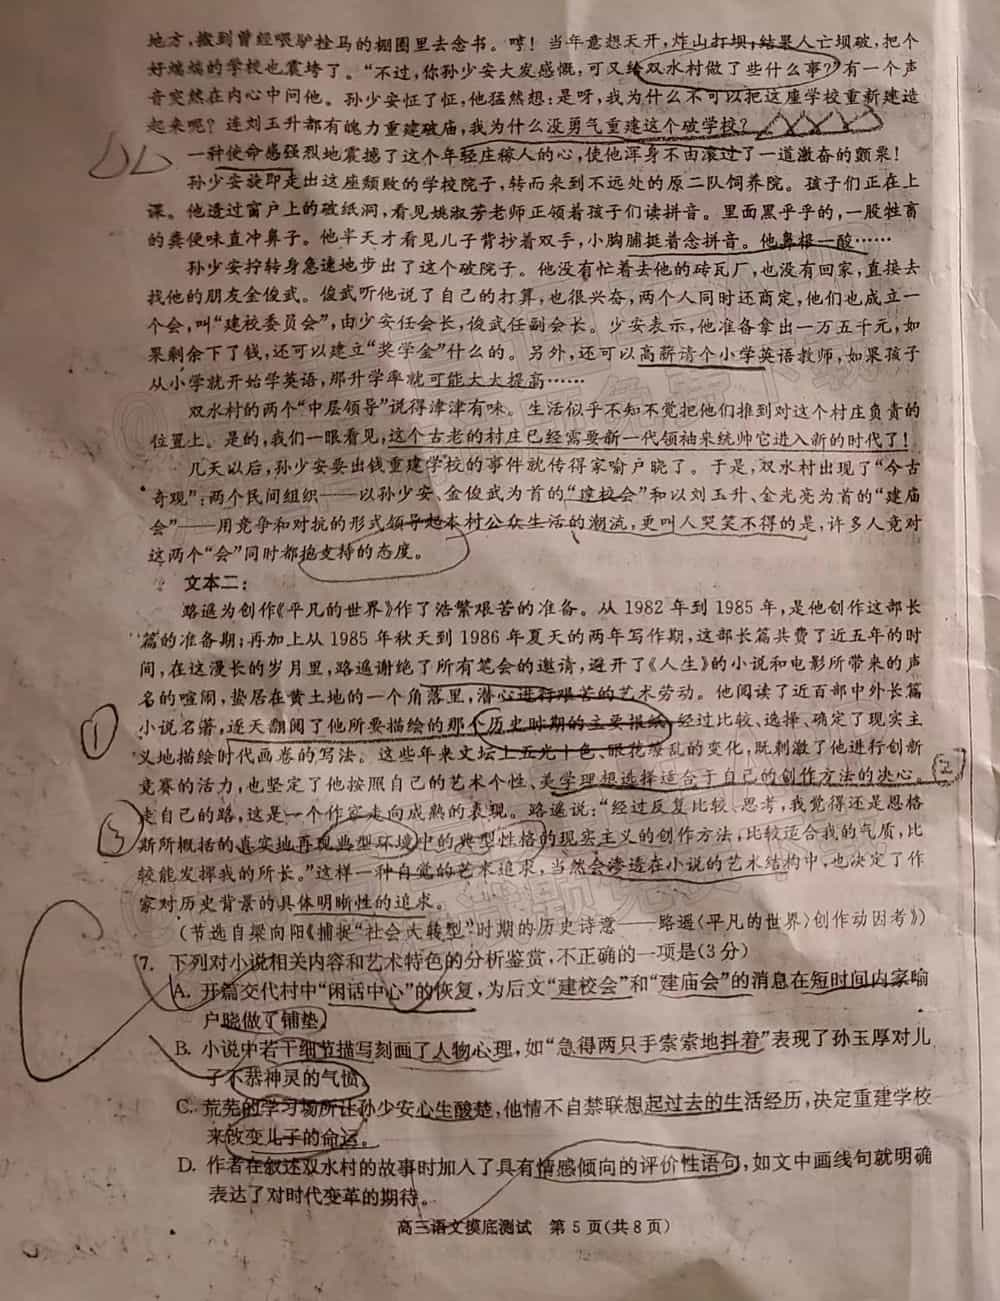 地方，搬到曾经喂驴拴马的棚圈里去念书。哼！当年意想天开，炸山打坝，结果人亡坝破，把个
好端端的学校也震垮了。“不过，你孙少安大发感慨，可又给双水村做了些什么事？”有一个声
音突然在内心中问他。孙少安怔了怔，他猛然想：是呀，我为什么不可以把这座学校重新建造
起来呢？连刘玉升都有魄力重建破庙，我为什么没勇气重建这个破学校？
一种使命感强烈地震撼了这个年轻庄稼人的心，使他浑身不由滚过了一道激奋的颤栗！
孙少安旋即走出这座颓败的学校院子，转而来到不远处的原二队饲养院。孩子们正在上
课。他透过窗户上的破纸洞，看见姚淑芳老师正领着孩子们读拼音。里面黑乎乎的，一股牲畜
的粪便味直冲鼻子。他半天才看见儿子背抄着双手，小胸脯挺着念拼音。他鼻根一酸……
孙少安拧转身急速地步出了这个破院子。他没有忙着去他的砖瓦厂，也没有回家，直接去
找他的朋友金俊武。俊武听他说了自己的打算，也很兴奋，两个人同时还商定，他们也成立一
个会，叫“建校委员会”，由少安任会长，俊武任副会长。少安表示，他准备拿出一万五千元，如
果剩余下了钱，还可以建立“奖学金”什么的。另外，还可以高薪请个小学英语教师，如果孩子
从小学就开始学英语，那升学率就可能大大提高……
双水村的两个“中层领导”说得津津有味。生活似乎不知不觉把他们推到对这个村庄负责的
位置上。是的，我们一眼看见，这个古老的村庄已经需要新一代领袖来统帅它进入新的时代了！
几天以后，孙少安要出钱重建学校的事件就传得家喻户晓了。于是，双水村出现了“今古
奇观”：两个民间组织——以孙少安、金俊武为首的“建校会”和以刘玉升、金光亮为首的“建庙
会”——用竞争和对抗的形式领导起本村公众生活的潮流，更叫人哭笑不得的是，许多人竟对
这两个“会”同时都抱支持的态度。
文本二：
路遥为创作《平凡的世界》作了浩繁艰苦的准备。从 1982 年到 1985 年，是他创作这部长
篇的准备期；再加上从 1985 年秋天到 1986 年夏天的两年写作期，这部长篇共费了近五年的时
间，在这漫长的岁月里，路遥谢绝了所有笔会的邀请，避开了《人生》的小说和电影所带来的声
名的喧闹，蛰居在黄土地的一个角落里，潜心进行艰苦的艺术劳动。他阅读了近百部中外长篇
小说名著，逐天翻阅了他所要描绘的那个历史时期的主要报纸，经过比较、选择、确定了现实主
①
义地描绘时代画卷的写法。这些年来文坛上五光十色、眼花缭乱的变化，既刺激了他进行创新
竞赛的活力，也坚定了他按照自己的艺术个性、美学理想选择适合于自己的创作方法的决心。②
走自己的路，这是一个作家走向成熟的表现。路遥说：“经过反复比较、思考，我觉得还是恩格
③
斯所概括的真实地再现典型环境中的典型性格的现实主义的创作方法，比较适合我的气质，比
较能发挥我的所长。”这样一种自觉的艺术追求，当然会渗透在小说的艺术结构中，也决定了作
家对历史背景的具体明晰性的追求。
（节选自梁向阳《捕捉“社会大转型”时期的历史诗意——路遥〈平凡的世界〉创作动因考》）
7. 下列对小说相关内容和艺术特色的分析鉴赏，不正确的一项是(3 分)
A. 开篇交代村中“闲话中心”的恢复，为后文“建校会”和“建庙会”的消息在短时间内家喻
户晓做了铺垫。
B. 小说中若干细节描写刻画了人物心理，如“急得两只手索索地抖着”表现了孙玉厚对儿
子不恭神灵的气愤。
C. 荒芜的学习场所让孙少安心生酸楚，他情不自禁联想起过去的生活经历，决定重建学校
来改变儿子的命运。
D. 作者在叙述双水村的故事时加入了具有情感倾向的评价性语句，如文中画线句就明确
表达了对时代变革的期待。
高三语文摸底测试 第 5 页(共 8 页)